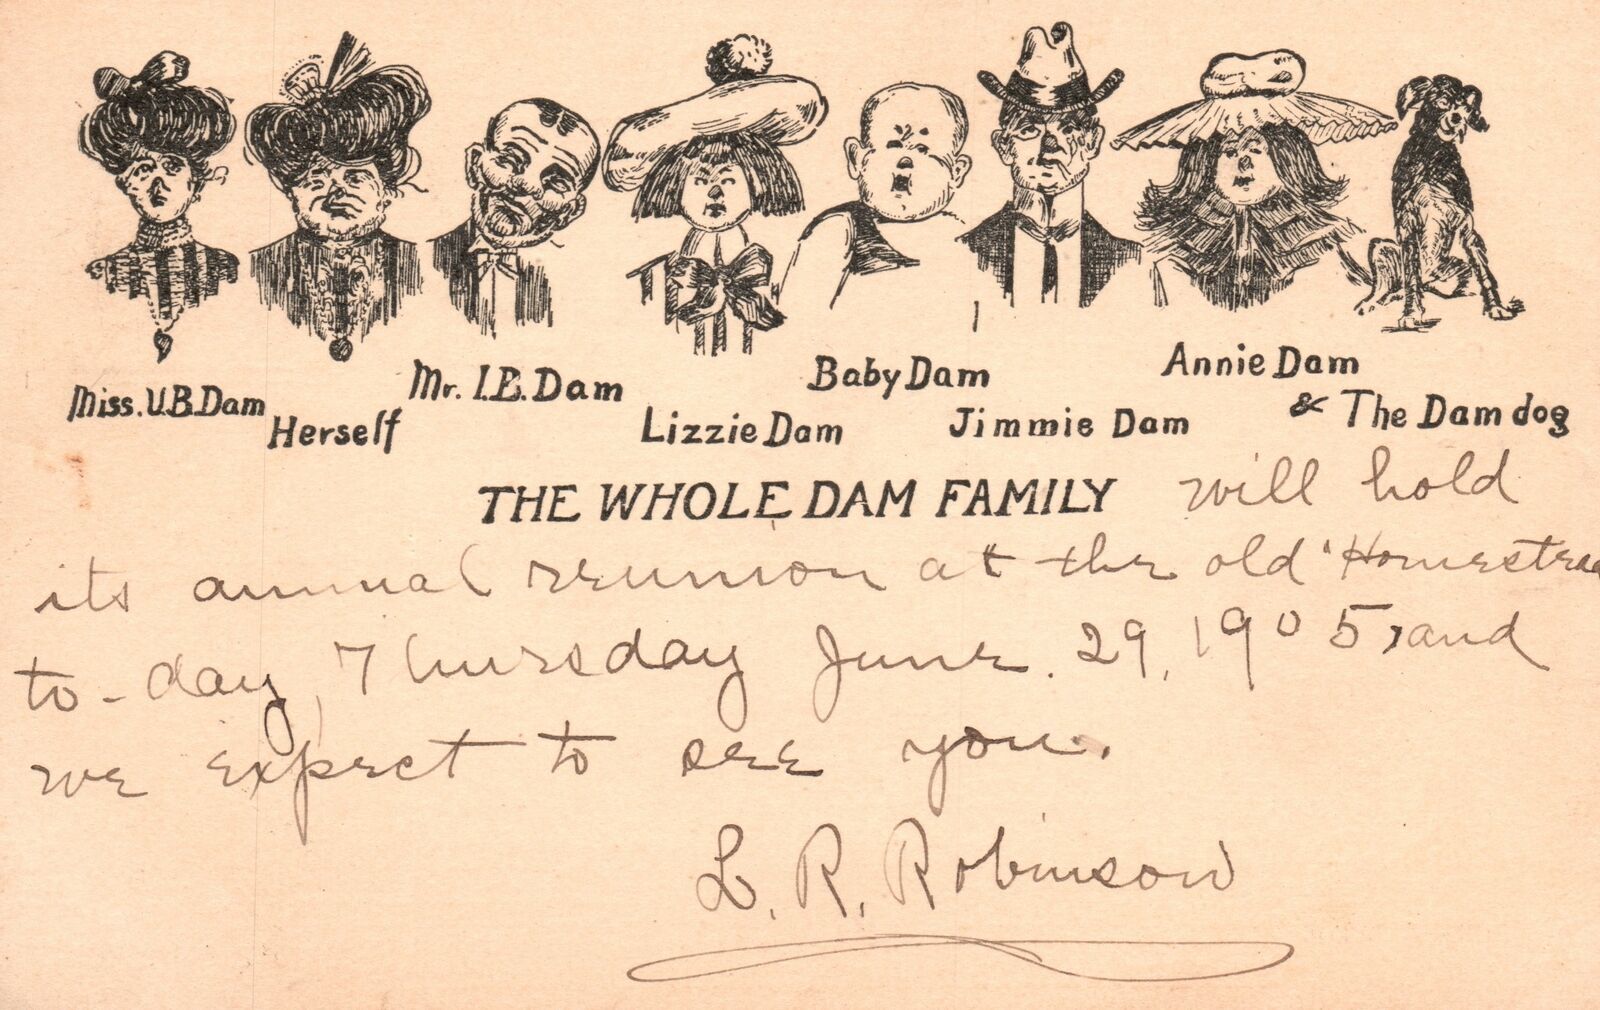 Miss. U.B. Dam
Herself
Mr. I.B. Dam
Lizzie Dam
Baby Dam
Jimmie Dam
Annie Dam
& The Dam dog
THE WHOLE DAM FAMILY will hold
its annual reunion at the old "Homestead
to-day, Thursday June. 29, 1905, and
we expect to see you.
L. R. Robinson